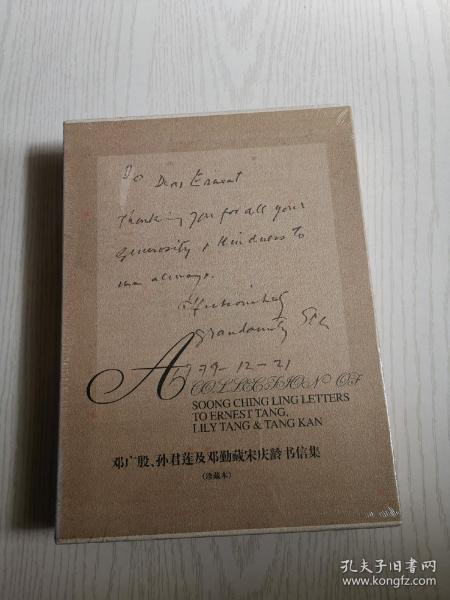 To Dear Ernest
Thanking you for all your
generosity & kindness to
me always.
Affectionately
1979-12-21
A
COLLECTION OF
SOONG CHING LING LETTERS
TO ERNEST TANG,
LILY TANG & TANG KAN
邓广殷、孙君莲及邓勤藏宋庆龄书信集
(珍藏本)
孔夫子旧书网
www.kongfz.com